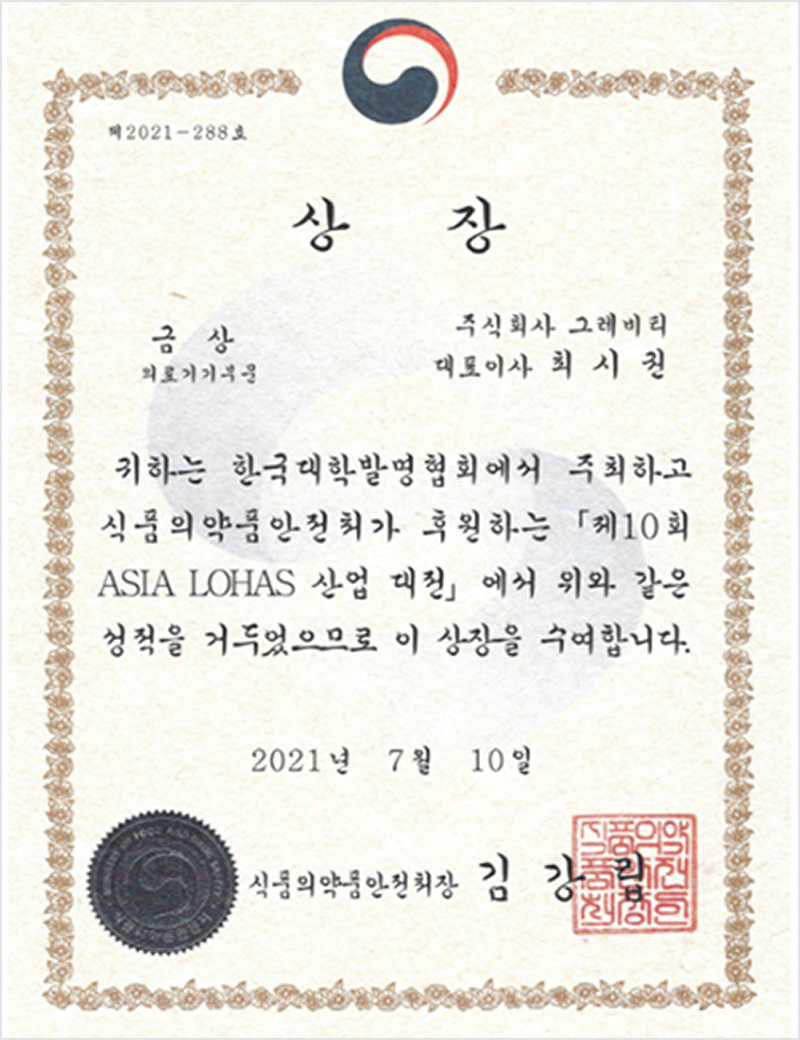 제2021-288호
상 장
금 상
의료기기부문
주식회사 그레비티
대표이사 최 시 권
귀하는 한국대학발명협회에서 주최하고
식품의약품안전처가 후원하는 「제10회
ASIA LOHAS 산업 대전」에서 위와 같은
성적을 거두었으므로 이 상장을 수여합니다.
2021년 7월 10일
식품의약품안전처장 김 강 립